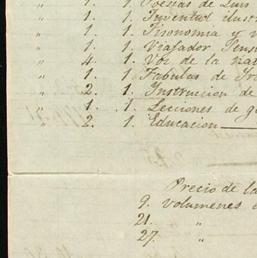 " 1. 1. Poesias de Luis
" 1. 1. Juventud ilustr
" 1. 1. Fisonomia y v
" 1. 1. Viajador Sens
" 4. 1. Voz de la nat
" 1. 1. Fabulas de
" 2. 1. Instruccion de
" 1. 1. Lecciones de g
" 2. 1. Educacion
Precio de la
9. volumenes
21. "
27. "